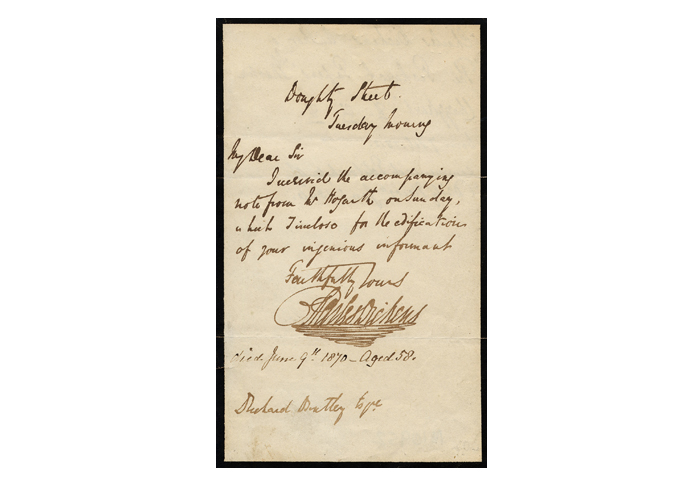 Doughty Street.
Tuesday Morning
My Dear Sir
I received the accompanying
note from Mr Hogarth on Sunday,
which I inclose for the edification
of your ingenious informant
Faithfully Yours
Charles Dickens
died June 9th 1870 - Aged 58.
Richard Bentley Esqre